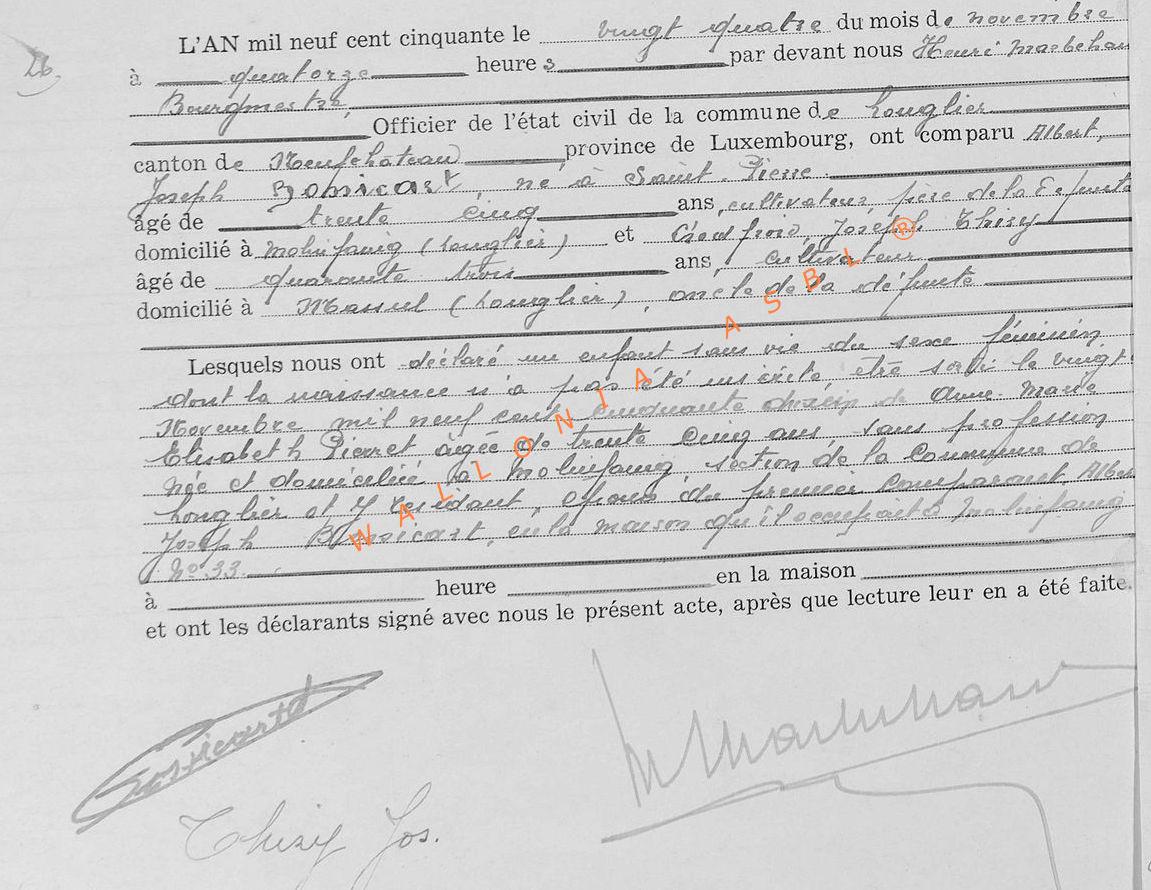 26.
L'AN mil neuf cent cinquante le vingt quatre du mois de novembre
à quatorze heures par devant nous Henri
Bourgmestre,
Officier de l'état civil de la commune de Longlier
canton de Neufchâteau province de Luxembourg, ont comparu Albert,
Joseph Bonicart, né à Saint-Pierre
âgé de trente cinq ans, cultivateur père de la Défunte
domicilié à Molinfaing (Longlier) et Godfroid, Joseph Thiry
âgé de quarante trois ans, cultivateur
domicilié à Massul (Longlier), oncle de la défunte
Lesquels nous ont déclaré un enfant sans vie du sexe féminin
dont la naissance n'a pas été inscrite, etre sorti le vingt
Novembre mil neuf cent cinquante du sein de Anne-Marie
Elisabeth Pierret âgée de trente cinq ans, sans profession
née et domiciliée à Molinfaing section de la commune de
Longlier et y résidant, épouse du premier comparant Albert
Joseph Bonicart, en la maison qu'il occupait à Molinfaing
N° 33.
à heure en la maison
et ont les déclarants signé avec nous le présent acte, après que lecture leur en a été faite.
Thiry Jos.
WALLONIA ASBL ®